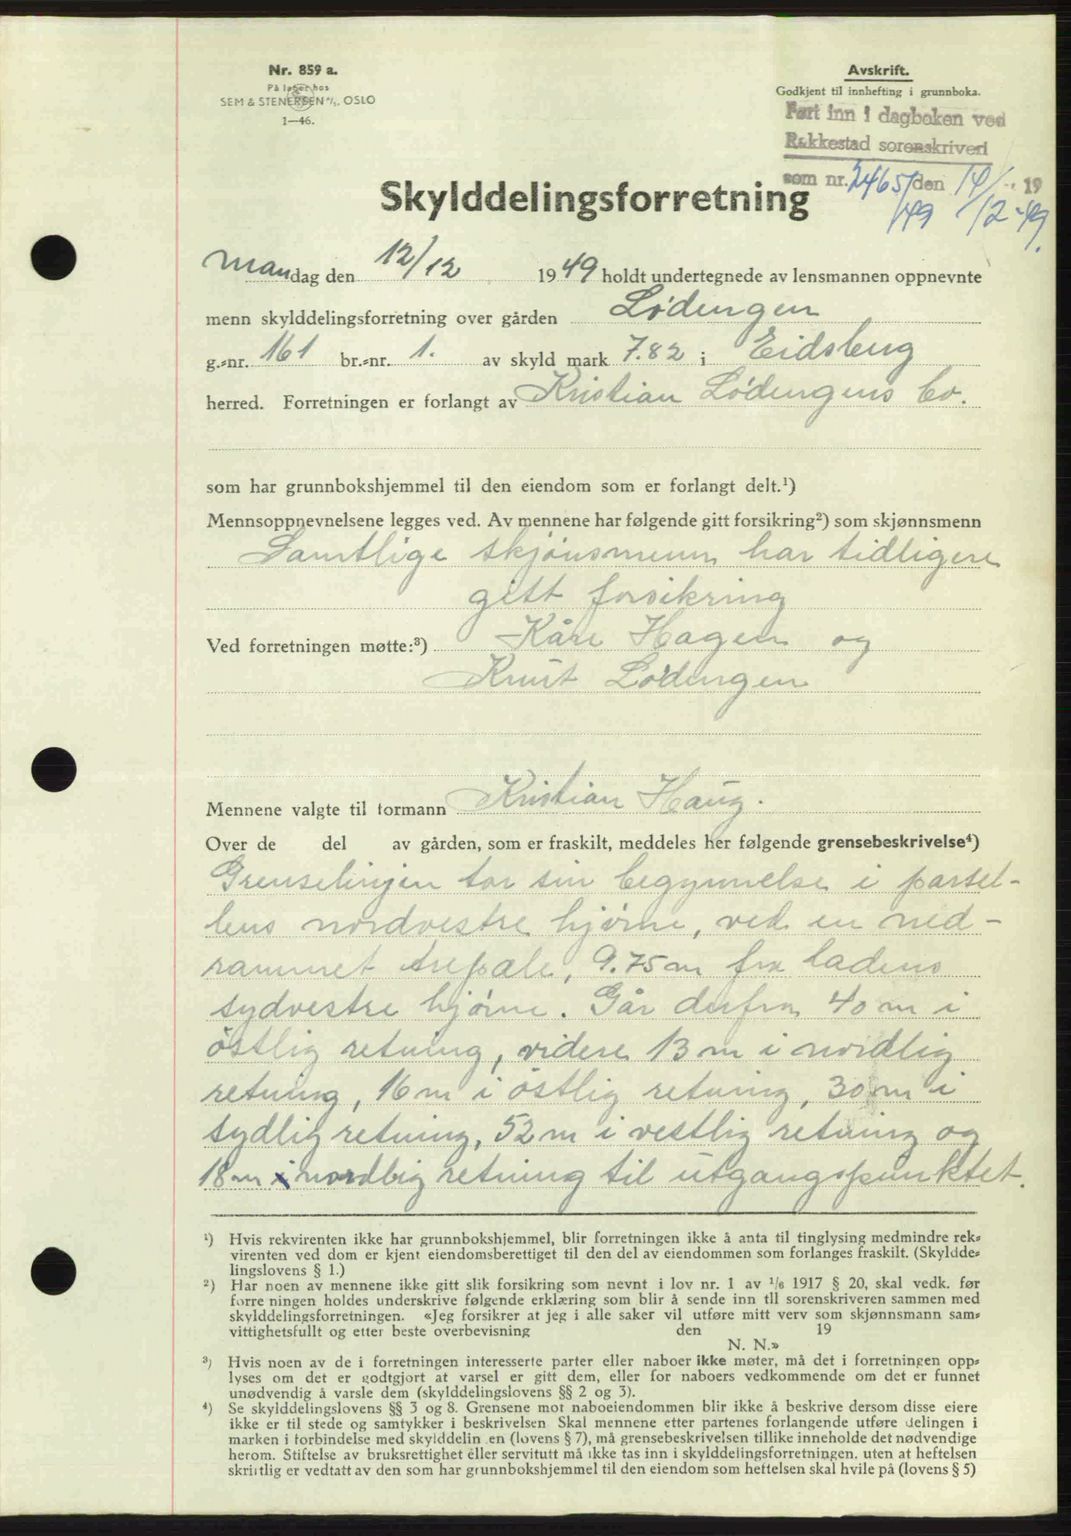 Nr. 859 a.
På lager hos
SEM & STENERSEN A/S, OSLO
1—46.
Avskrift.
Godkjent til innhefting i grunnboka.
Ført inn i dagboken ved
Rakkestad sorenskriveri
som nr. 2465/49 den 14/12 1949.
Skylddelingsforretning
Mandag den 12/12 1949 holdt undertegnede av lensmannen oppnevnte
menn skylddelingsforretning over gården Lödengen
g.-nr. 161 br.-nr. 1. av skyld mark 7.82 i Eidsberg
herred. Forretningen er forlangt av Kristian Lödengens bo.
som har grunnbokshjemmel til den eiendom som er forlangt delt.¹)
Mennsoppnevnelsene legges ved. Av mennene har følgende gitt forsikring²) som skjønnsmenn
Samtlige skjönsmenn har tidligere
gitt forsikring
Ved forretningen møtte:³) Kåre Hagen og
Knut Lödengen
Mennene valgte til formann Kristian Haug.
Over de del av gården, som er fraskilt, meddeles her følgende grensebeskrivelse⁴)
Grenselinjen tar sin begynnelse i parsel-
lens nordvestre hjörne, ved en ned-
rammet trepæle, 9.75 m fra ladens
sydvestre hjörne. Går derfra 40 m i
östlig retning, videre 13 m i nordlig
retning, 16 m i östlig retning, 30 m i
sydlig retning, 52 m i vestlig retning og
18 m i nordlig retning til utgangspunktet.
¹) Hvis rekvirenten ikke har grunnbokshjemmel, blir forretningen ikke å anta til tinglysing medmindre rek-
virenten ved dom er kjent eiendomsberettiget til den del av eiendommen som forlanges fraskilt. (Skyldde-
lingslovens § 1.)
²) Har noen av mennene ikke gitt slik forsikring som nevnt i lov nr. 1 av 1/6 1917 § 20, skal vedk. før
forretningen holdes underskrive følgende erklæring som blir å sende inn til sorenskriveren sammen med
skylddelingsforretningen. «Jeg forsikrer at jeg i alle saker vil utføre mitt verv som skjønnsmann sam-
vittighetsfullt og etter beste overbevisning den 19
N. N.»
³) Hvis noen av de i forretningen interesserte parter eller naboer ikke møter, må det i forretningen opp-
lyses om det er godtgjort at varsel er gitt dem, eller for naboers vedkommende om det er funnet
unødvendig å varsle dem (skylddelingslovens §§ 2 og 3).
⁴) Se skylddelingslovens §§ 3 og 8. Grensene mot naboeiendommen blir ikke å beskrive dersom disse eiere
ikke er til stede og samtykker i beskrivelsen Skal mennene etter partenes forlangende utføre delingen i
marken i forbindelse med skylddelingen (lovens § 7), må grensebeskrivelsen tillike inneholde det nødvendige
herom. Stiftelse av bruksrettighet eller servitutt må ikke tas inn i skylddelingsforretningen, uten at heftelsen
skriftlig er vedtatt av den som har grunnbokshjemmel til den eiendom som heftelsen skal hvile på (lovens § 5)